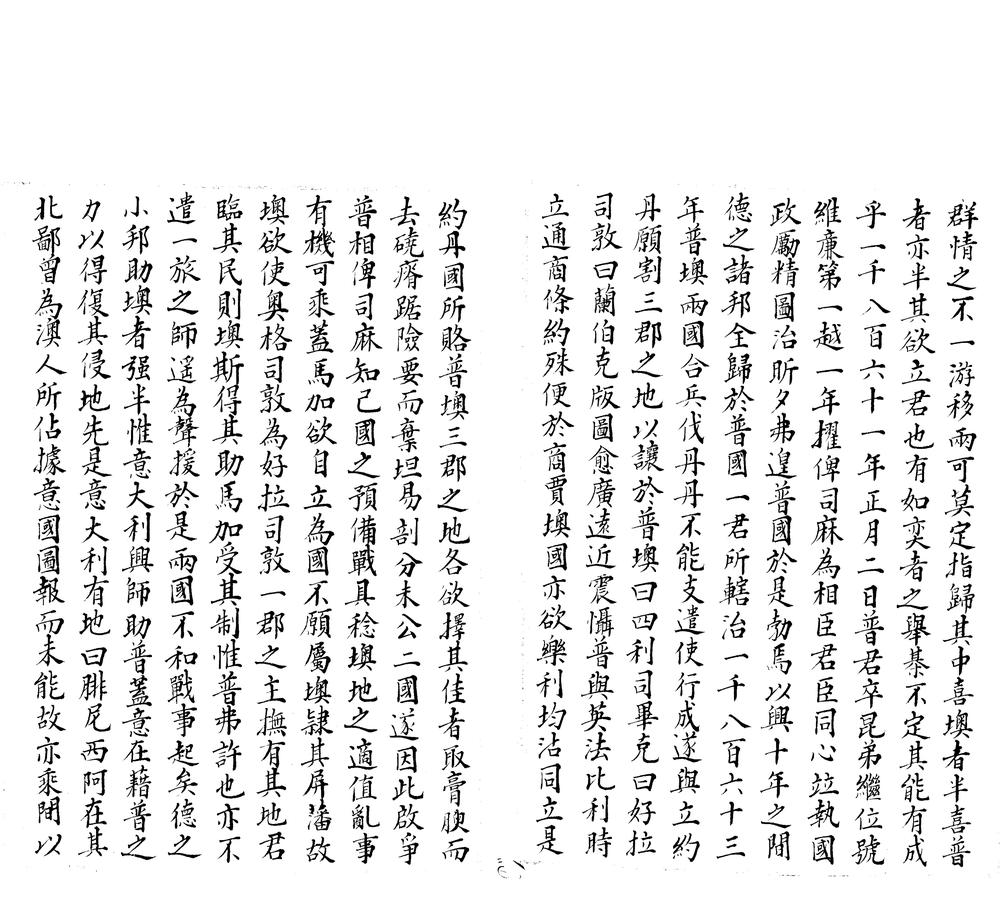 群情之不一游移兩可莫定指歸其中喜墺者半喜普
者亦半其欲立君也有如奕者之舉棊不定其能有成
乎一千八百六十一年正月二日普君卒昆弟繼位號
維廉第一越一年擢俾司麻為相臣君臣同心竝執國
政勵精圖治昕夕弗遑普國於是勃焉以興十年之間
德之諸邦全歸於普國一君所轄治一千八百六十三
年普墺兩國合兵伐丹丹不能支遣使行成遂與立約
丹願割三郡之地以讓於普墺曰四利司畢克曰好拉
司敦曰蘭伯克版圖愈廣遠近震懾普與英法比利時
立通商條約殊便於商賈墺國亦欲樂利均沾同立是
約丹國所賂普墺三郡之地各欲擇其佳者取膏腴而
去磽瘠踞險要而棄坦易剖分未公二國遂因此啟爭
普相俾司麻知己國之預備戰具稔墺地之適值亂事
有機可乘蓋馬加欲自立為國不願屬墺隸其屏藩故
墺欲使奧格司敦為好拉司敦一郡之主撫有其地君
臨其民則墺斯得其助馬加受其制惟普弗許也亦不
遣一旅之師遥為聲援於是兩國不和戰事起矣德之
小邦助墺者强半惟意大利興師助普蓋意在藉普之
力以得復其侵地先是意大利有地曰腓尼西阿在其
北鄙曾為澳人所佔據意國圖報而未能故亦乘間以